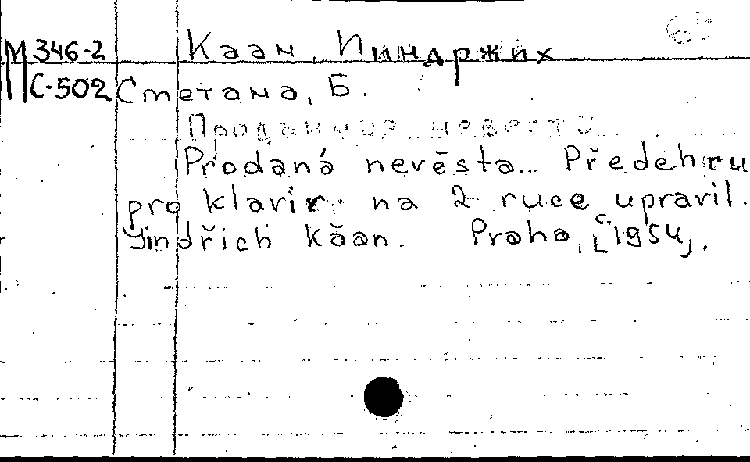 М 346-2 Каан, Индржих
С-502 Сметана, Б.
Проданная невеста
Prodaná nevěsta... Předehru
pro klavír na 2 ruce upravil.
Jindřich Kăan. Praha, [с. 1954].